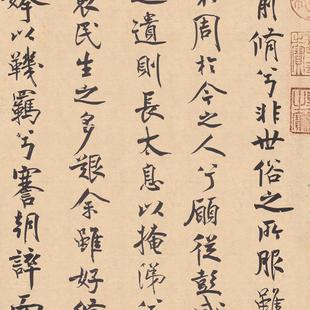 前脩兮非世俗之所服雖
周於今之人兮願從彭咸
之遺則長太息以掩涕兮
哀民生之多艱余雖好脩
姱以鞿羈兮謇朝誶而